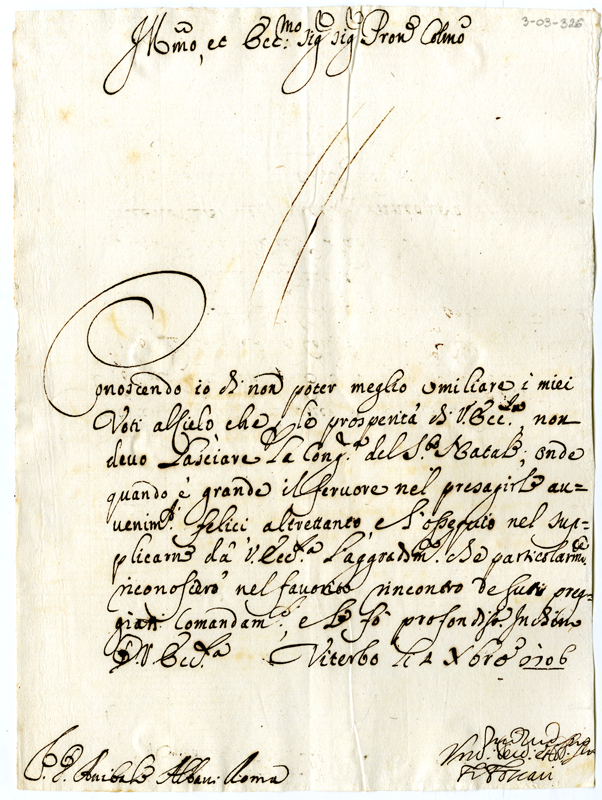 3-03-326
Ill.mo, et Ecc.mo Sig.r Sig.r Pron.e Colmo
Conoscendo io di non poter meglio umiliare i miei
Voti al Cielo che le prosperità di V. Ecc.za, non
devo lasciare la Cong.a del S. Natale; onde
quando è grande il fervore nel presagirle au-
venim.ti felici altrettanto e l'ossequio nel sup=
plicarne da V. Ecc.za l'aggradim.to che particolarm.te
riconoscerò nel favorito rincontro de suoi preg-
giati Comandam.ti, e le fò profondiss.o Inchino
D. V. Ecc.za Viterbo li 4 Xbre 1706
Anibale Albani Roma